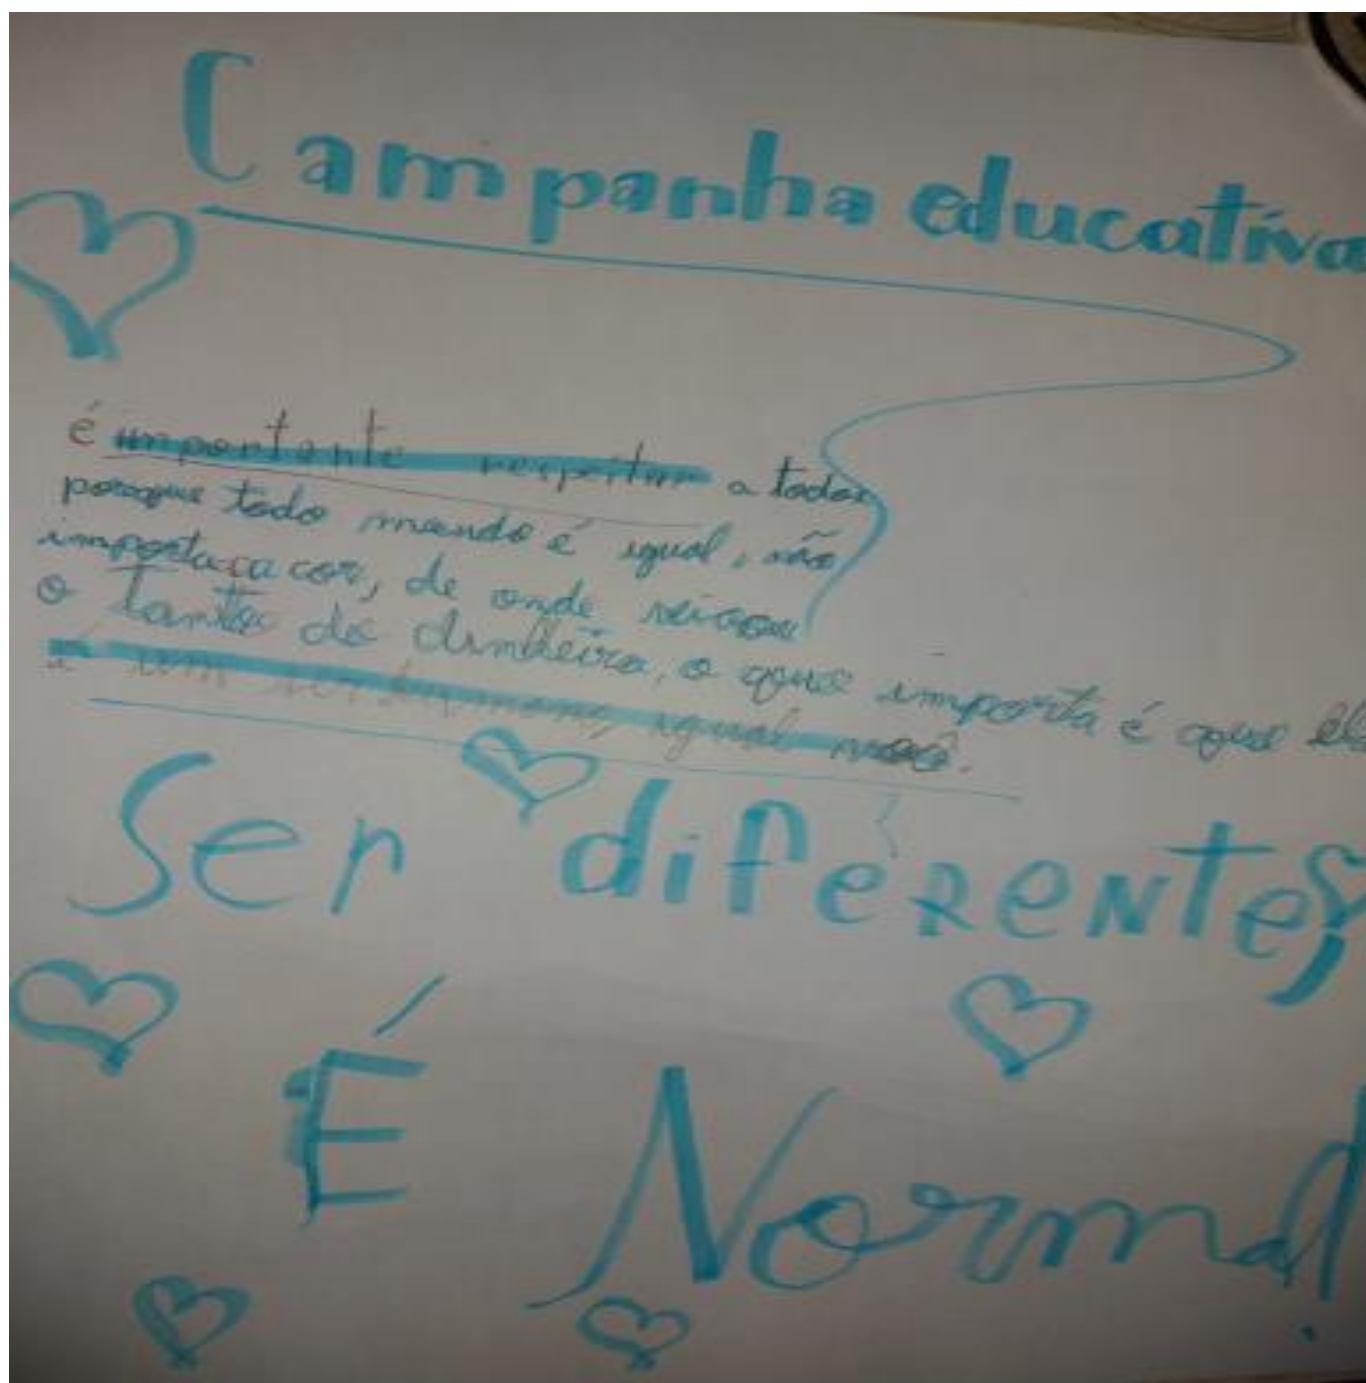 Campanha educativa
é importante respeitar a todos
porque todo mundo é igual, não
importa a cor, de onde veio ou
o tanto de dinheiro, o que importa é que ele
é um ser humano, igual você.
Ser diferente,
É Normal!